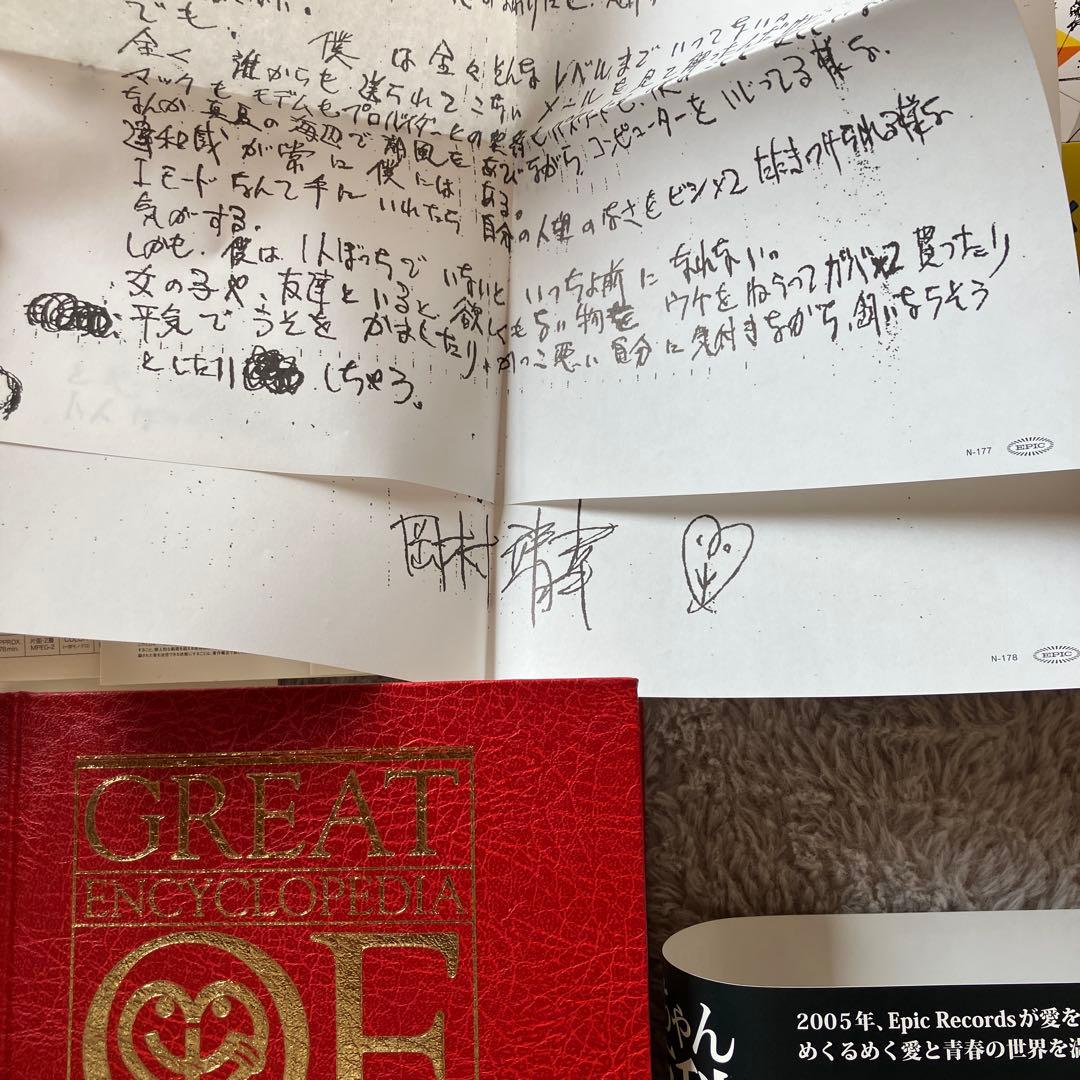 でも.
全く 誰からも 僕 は 全々 そんな レベルまで いってない。
マックも モデムも 送られて こない メールを
なんか 真夏の海辺で 潮風を あびながら コンピューターを いじってる様な.
違和感が常に 僕には ある。
Iモードなんて手に いれたら 自分の人望のなさをビシバシ たたきつけられる様な
気がする.
しかも. 僕は 1人ぼっちで いないと いっちょ前に なれない。
女の子や、友達といると、欲しくもない物を ウケをねらって ガバガバ 買ったり
平気で うそを かましたり、かっこ悪い自分に気付きながら、飼いならそう
としたり しちゃう。
N-177 EPIC
岡村靖幸
N-178 EPIC
PPROX.
78min.
片面・2層
MPEG-2
GREAT
ENCYCLOPEDIA
OF
ちゃん
2005年、Epic Recordsが愛を
めくるめく愛と青春の世界を満